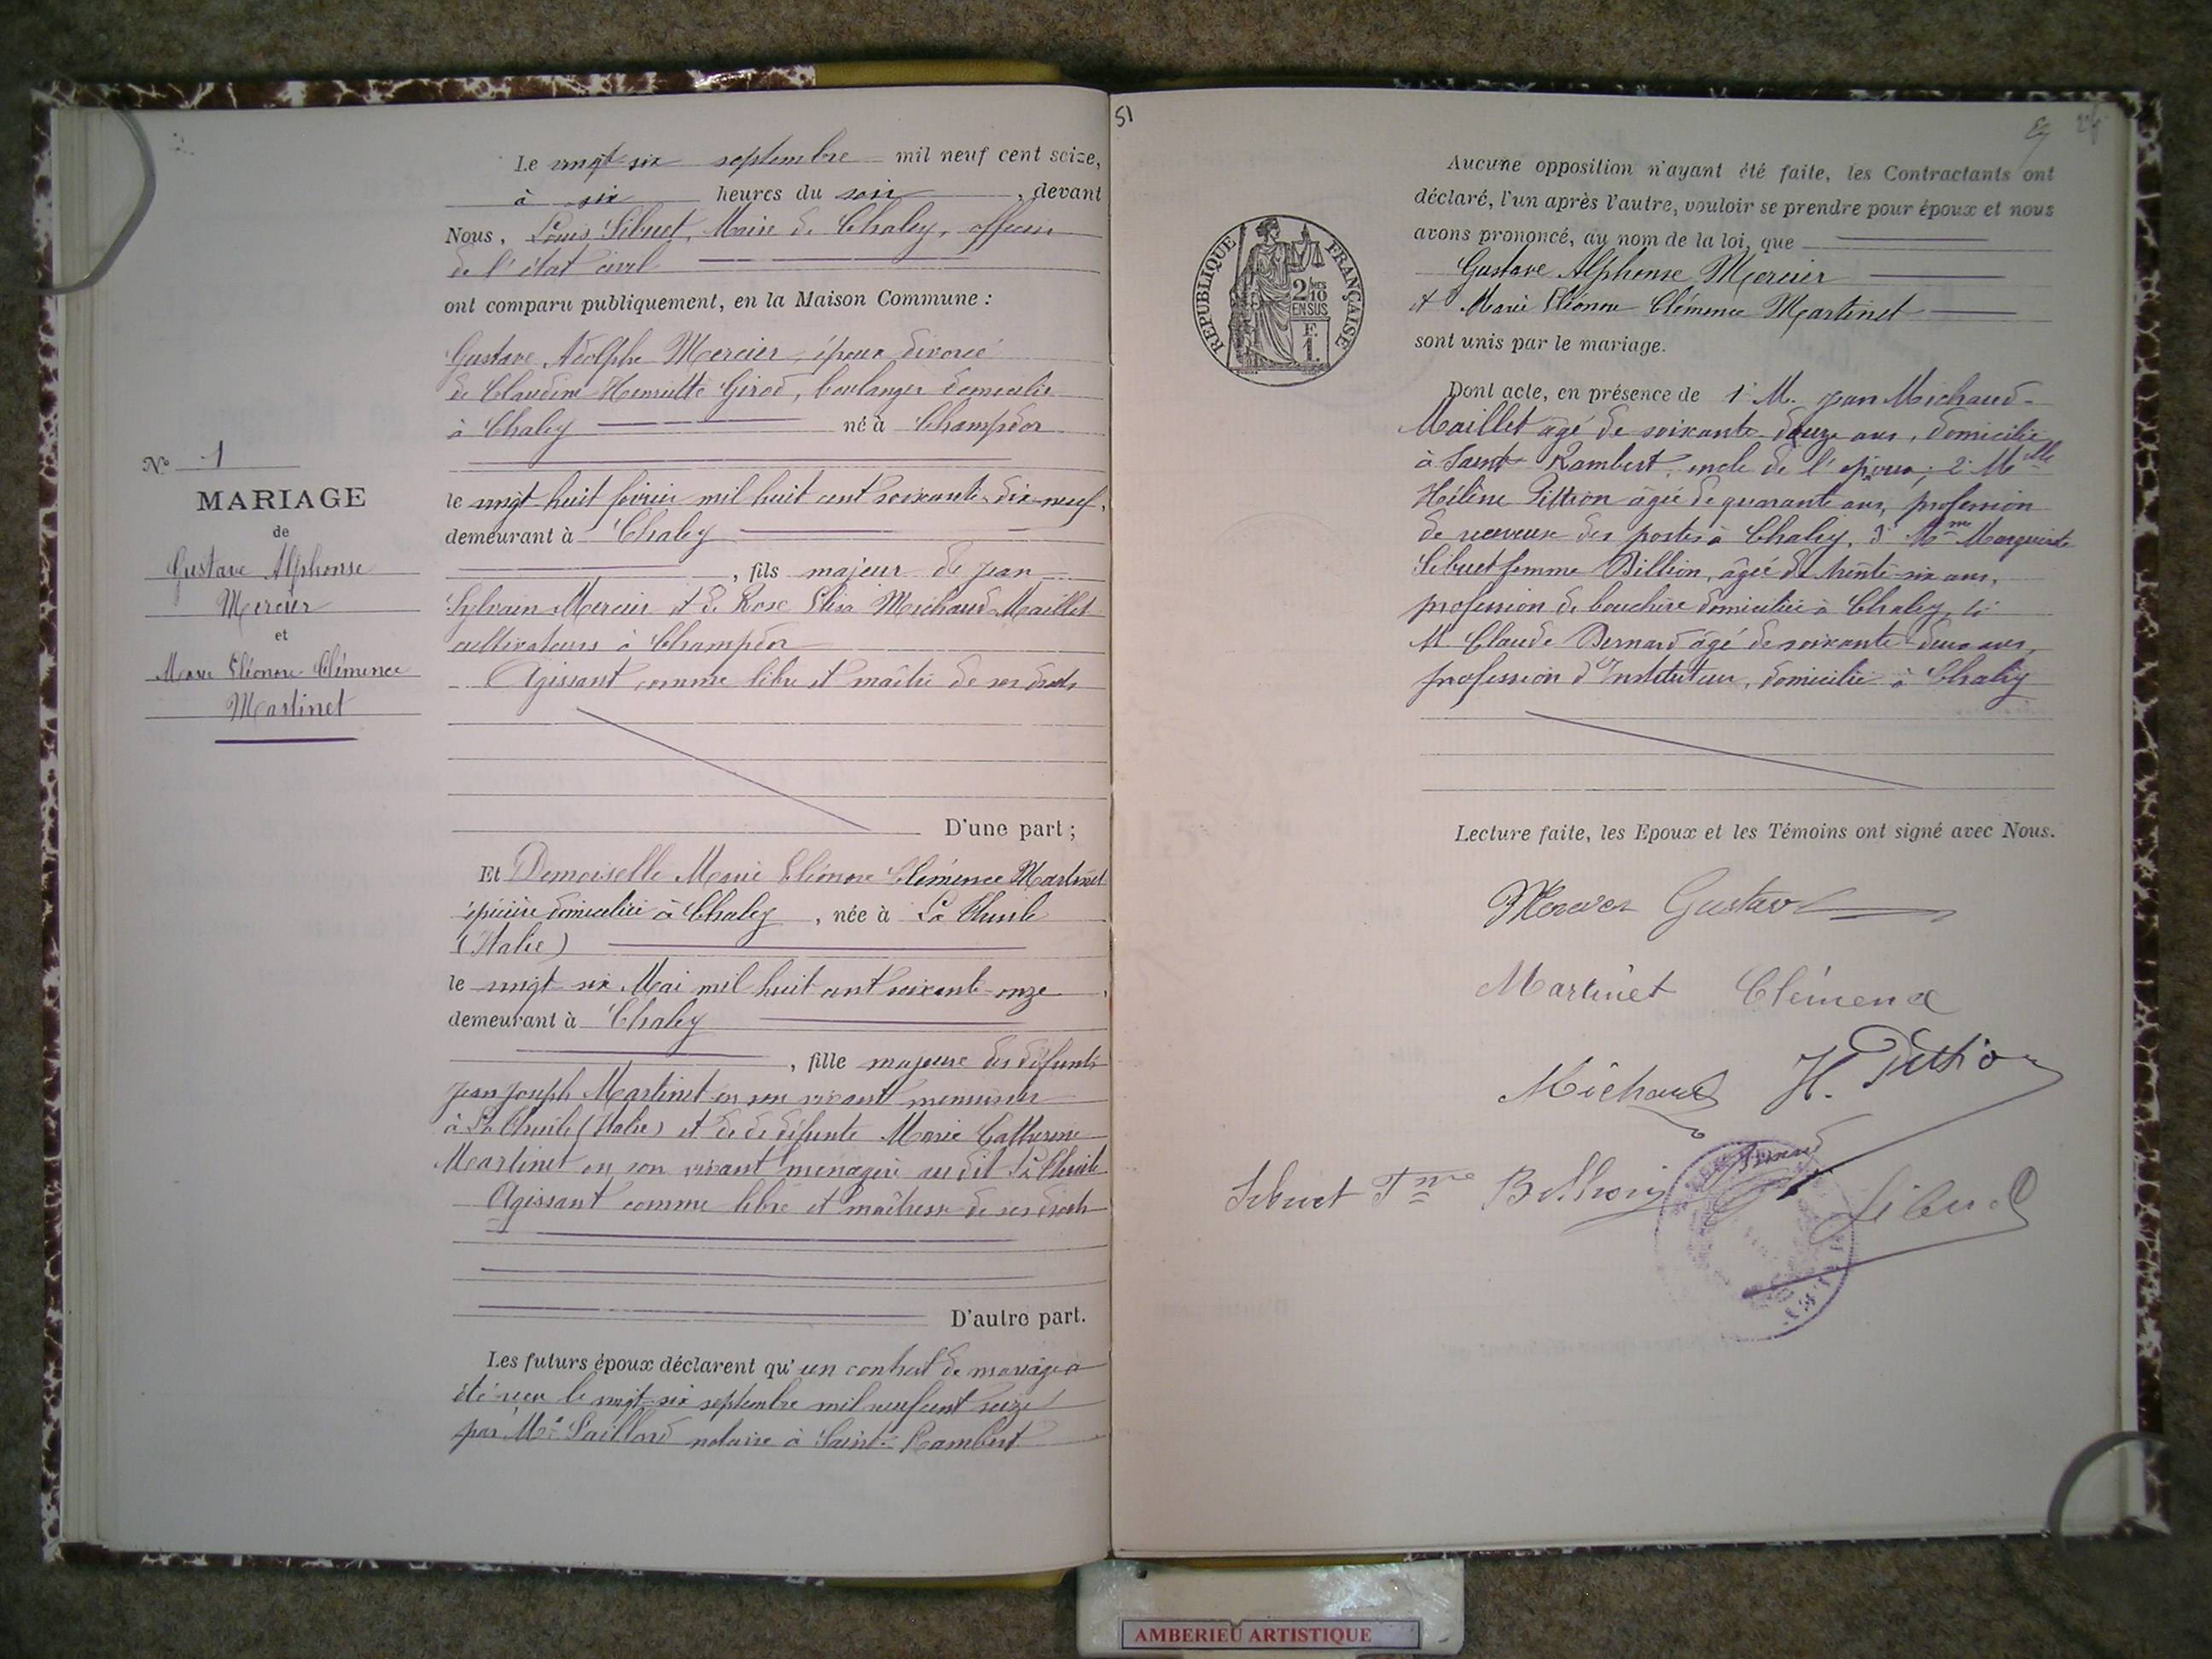 Le vingt-six septembre mil neuf cent seize,
à six heures du soir, devant
Nous, Louis Sibuet, Maire de Chaley, officier
de l'état civil
ont comparu publiquement, en la Maison Commune :
Gustave Adolphe Mercier, époux divorcé
de Claudine Henriette Girod, boulanger domicilié
à Chaley né à Champdor
le vingt huit février mil huit cent soixante-dix-neuf,
demeurant à Chaley
, fils majeur de Jean
Sylvain Mercier et de Rose Elisa Michaud-Maillet
cultivateurs à Champdor
Agissant comme libre et maître de ses droits
D'une part ;
Nº 1
MARIAGE
de
Gustave Alphonse
Mercier
et
Marie Eléonore Clémence
Martinet
Et Demoiselle Marie Eléonore Clémence Martinet
épicière domiciliée à Chaley, née à La Thuile
(Italie)
le vingt-six Mai mil huit cent soixante-onze,
demeurant à Chaley
, fille majeure des défunts
Jean Joseph Martinet en son vivant menuisier
à La Thuile (Italie) et de de défunte Marie Catherine
Martinet en son vivant ménagère au dit La Thuile
Agissant comme libre et maîtresse de ses droits
D'autre part.
Les futurs époux déclarent qu'un contrat de mariage a
été reçu le vingt-six septembre mil neuf cent seize
par Me Saillard notaire à Saint-Rambert
51
Aucune opposition n'ayant été faite, les Contractants ont
déclaré, l'un après l'autre, vouloir se prendre pour époux et nous
avons prononcé, au nom de la loi, que
Gustave Alphonse Mercier
et Marie Eléonore Clémence Martinet
sont unis par le mariage.
RÉPUBLIQUE FRANÇAISE
2/10 EN SUS
F.
1.
Dont acte, en présence de 1° M. Jean Michaud-
Maillet âgé de soixante-douze ans, domicilié
à Saint Rambert, oncle de l'époux; 2° Melle
Hélène Pittion âgée de quarante ans, profession
de receveuse des postes à Chaley, 3° Mme Marguerite
Sibuet femme Billion, âgée de trente-six ans,
profession de bouchère domiciliée à Chaley, 4°
M. Claude Bernard âgé de soixante-deux ans,
profession d'Instituteur, domicilié à Chaley
Lecture faite, les Epoux et les Témoins ont signé avec Nous.
Mercier Gustave
Martinet Clémence
Michaud H. Pittion
Sibuet Fme Billion Sibuet
AMBERIEU ARTISTIQUE